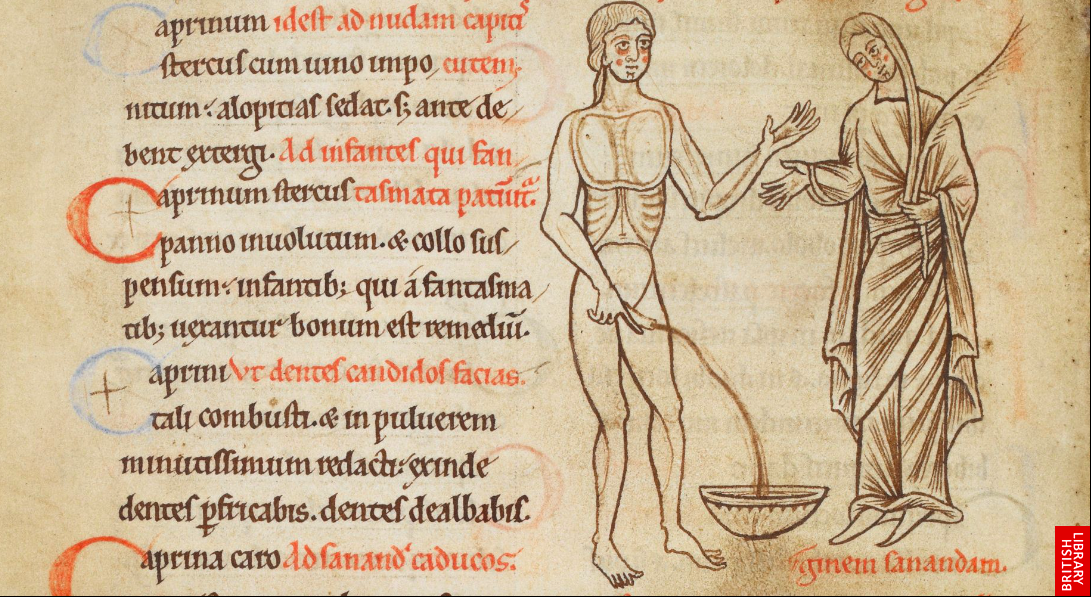 aprinum idest ad nudam capitis
stercus cum uino inpo cutem.
nitum. alopicias sedat. s; ante de
bent extergi. Ad infantes qui fan
Caprinum stercus tasmata patiūt̄.
panno inuolutum. & collo sus
pensum. infantib; qui a fantasma
tib; uexantur bonum est remediū.
aprini Vt dentes candidos facias.
tali combusti. & in puluerem
minutissimum redacti. exinde
dentes ꝑfricabis. dentes dealbabis.
Caprina caro Ad sanand caducos.
ginem sanandam.
BRITISH
LIBRARY